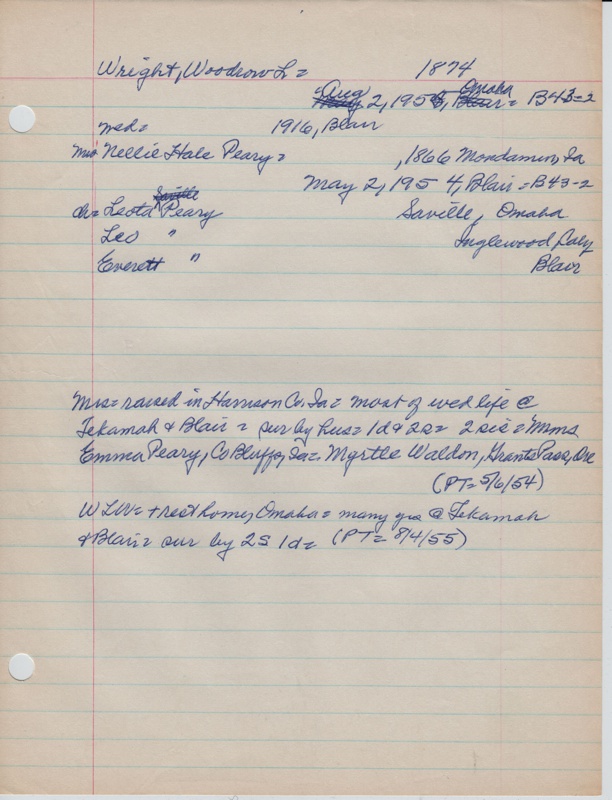 Wright, Woodrow L = 1874
Aug
May 2, 1955, Omaha Blair = B43-2
wed = 1916, Blair
Mrs Nellie Hale Peary = , 1866 Mondamin, Ia
May 2, 1954, Blair = B43-2
ch = Leota Saville Peary Saville, Omaha
Leo " Inglewood, Calif
Everett " Blair
Mrs = raised in Harrison Co. Ia = most of wed life @
Tekamah & Blair = sur by hus = 1d & 2s = 2 sis = Mms
Emma Peary, Co Bluffs, Ia = Myrtle Waldon, Grants Pass, Ore
(PT = 5/6/54)
WLW = + rest home, Omaha = many yrs @ Tekamah
& Blair = sur by 2s 1d = (PT = 8/4/55)